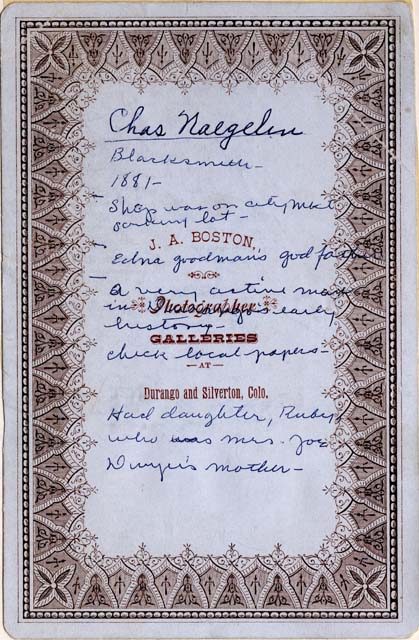 Chas Naegelin
Blacksmith -
1881 -
Shop was on city mkt
parking lot -
J. A. BOSTON,
Edna Goodman's god father
a very active man
Photographer
in early
history -
GALLERIES
check local papers -
AT
Durango and Silverton, Colo.
Had daughter, Ruby
who was Mrs. Joe
Dwyer's mother -